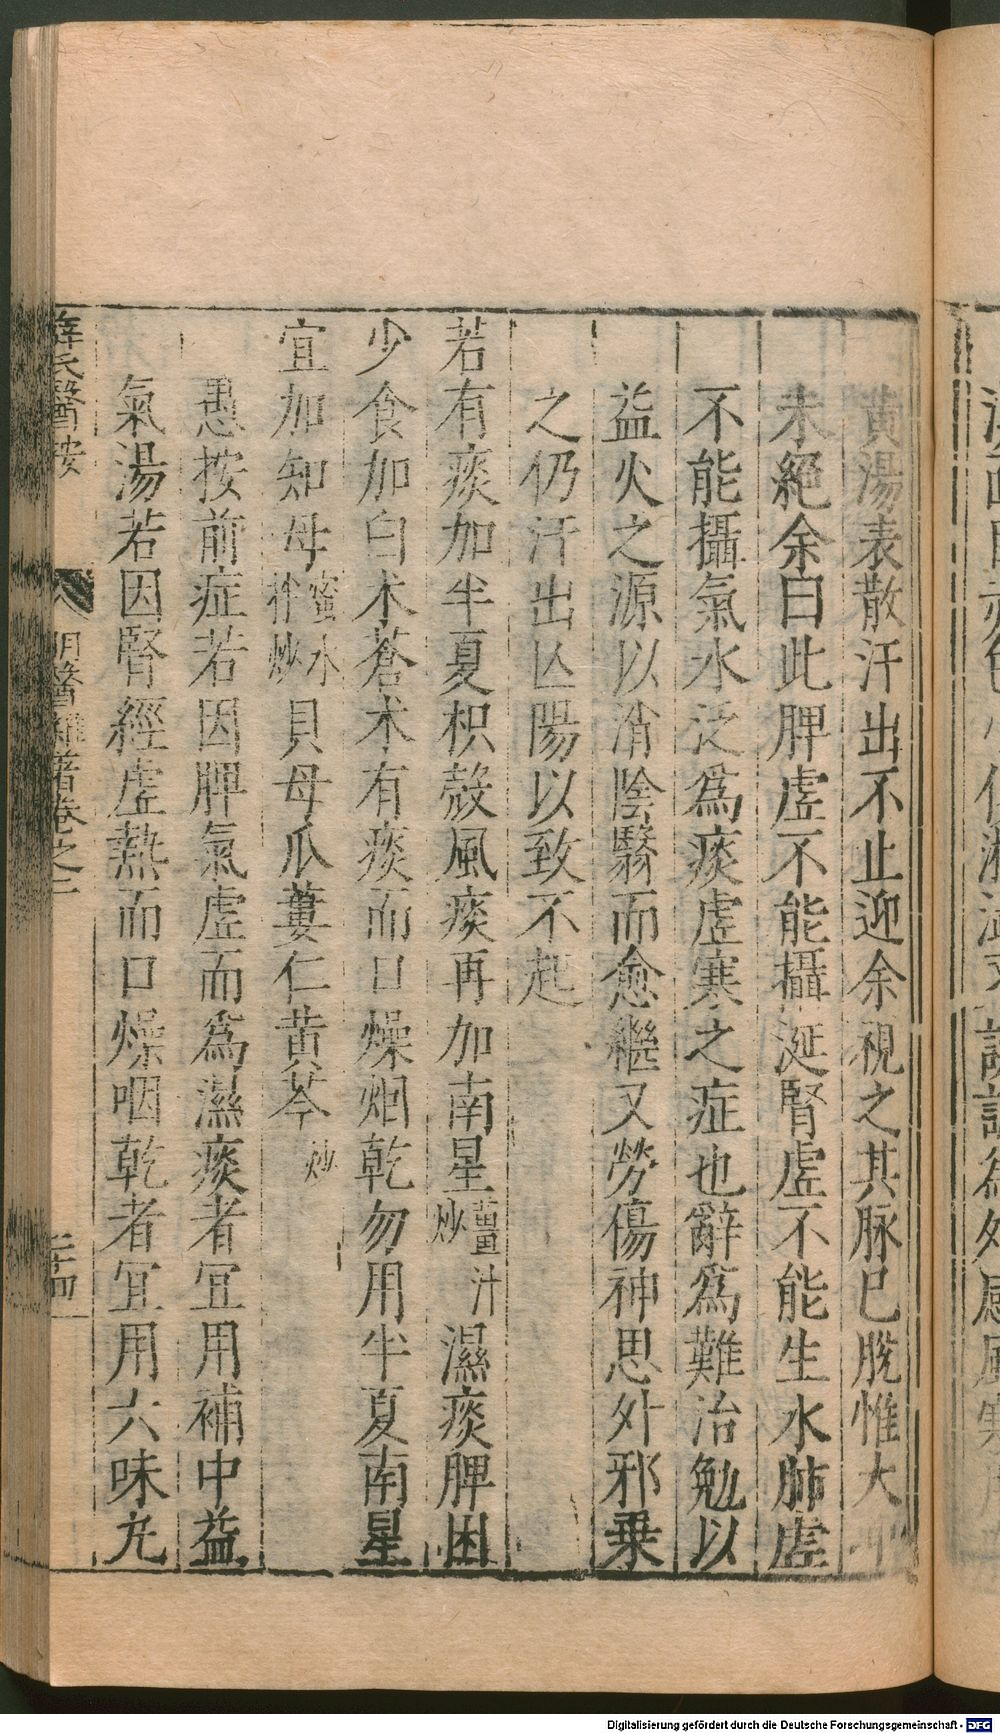 黄湯表散汗出不止迎余視之其脉已脫惟大
未絕余曰此脾虚不能攝涎腎虚不能生水肺虚
不能攝氣水泛爲痰虚寒之症也辭爲難治勉以
益火之源以消陰翳而愈繼又勞傷神思外邪乗
之仍汗出亾陽以致不起
若有痰加半夏枳殼風痰再加南星薑汁炒濕痰脾困
少食加白术蒼术有痰而口燥咽乾勿用半夏南星
宜加知母蜜水拌炒貝母瓜蔞仁黄芩炒
愚按前症若因脾氣虚而爲濕痰者宜用補中益
氣湯若因腎經虚熱而口燥咽乾者宜用六味𠀋
薛氏醫按 明醫雜著卷之一 二十四
Digitalisierung gefördert durch die Deutsche Forschungsgemeinschaft - DFG